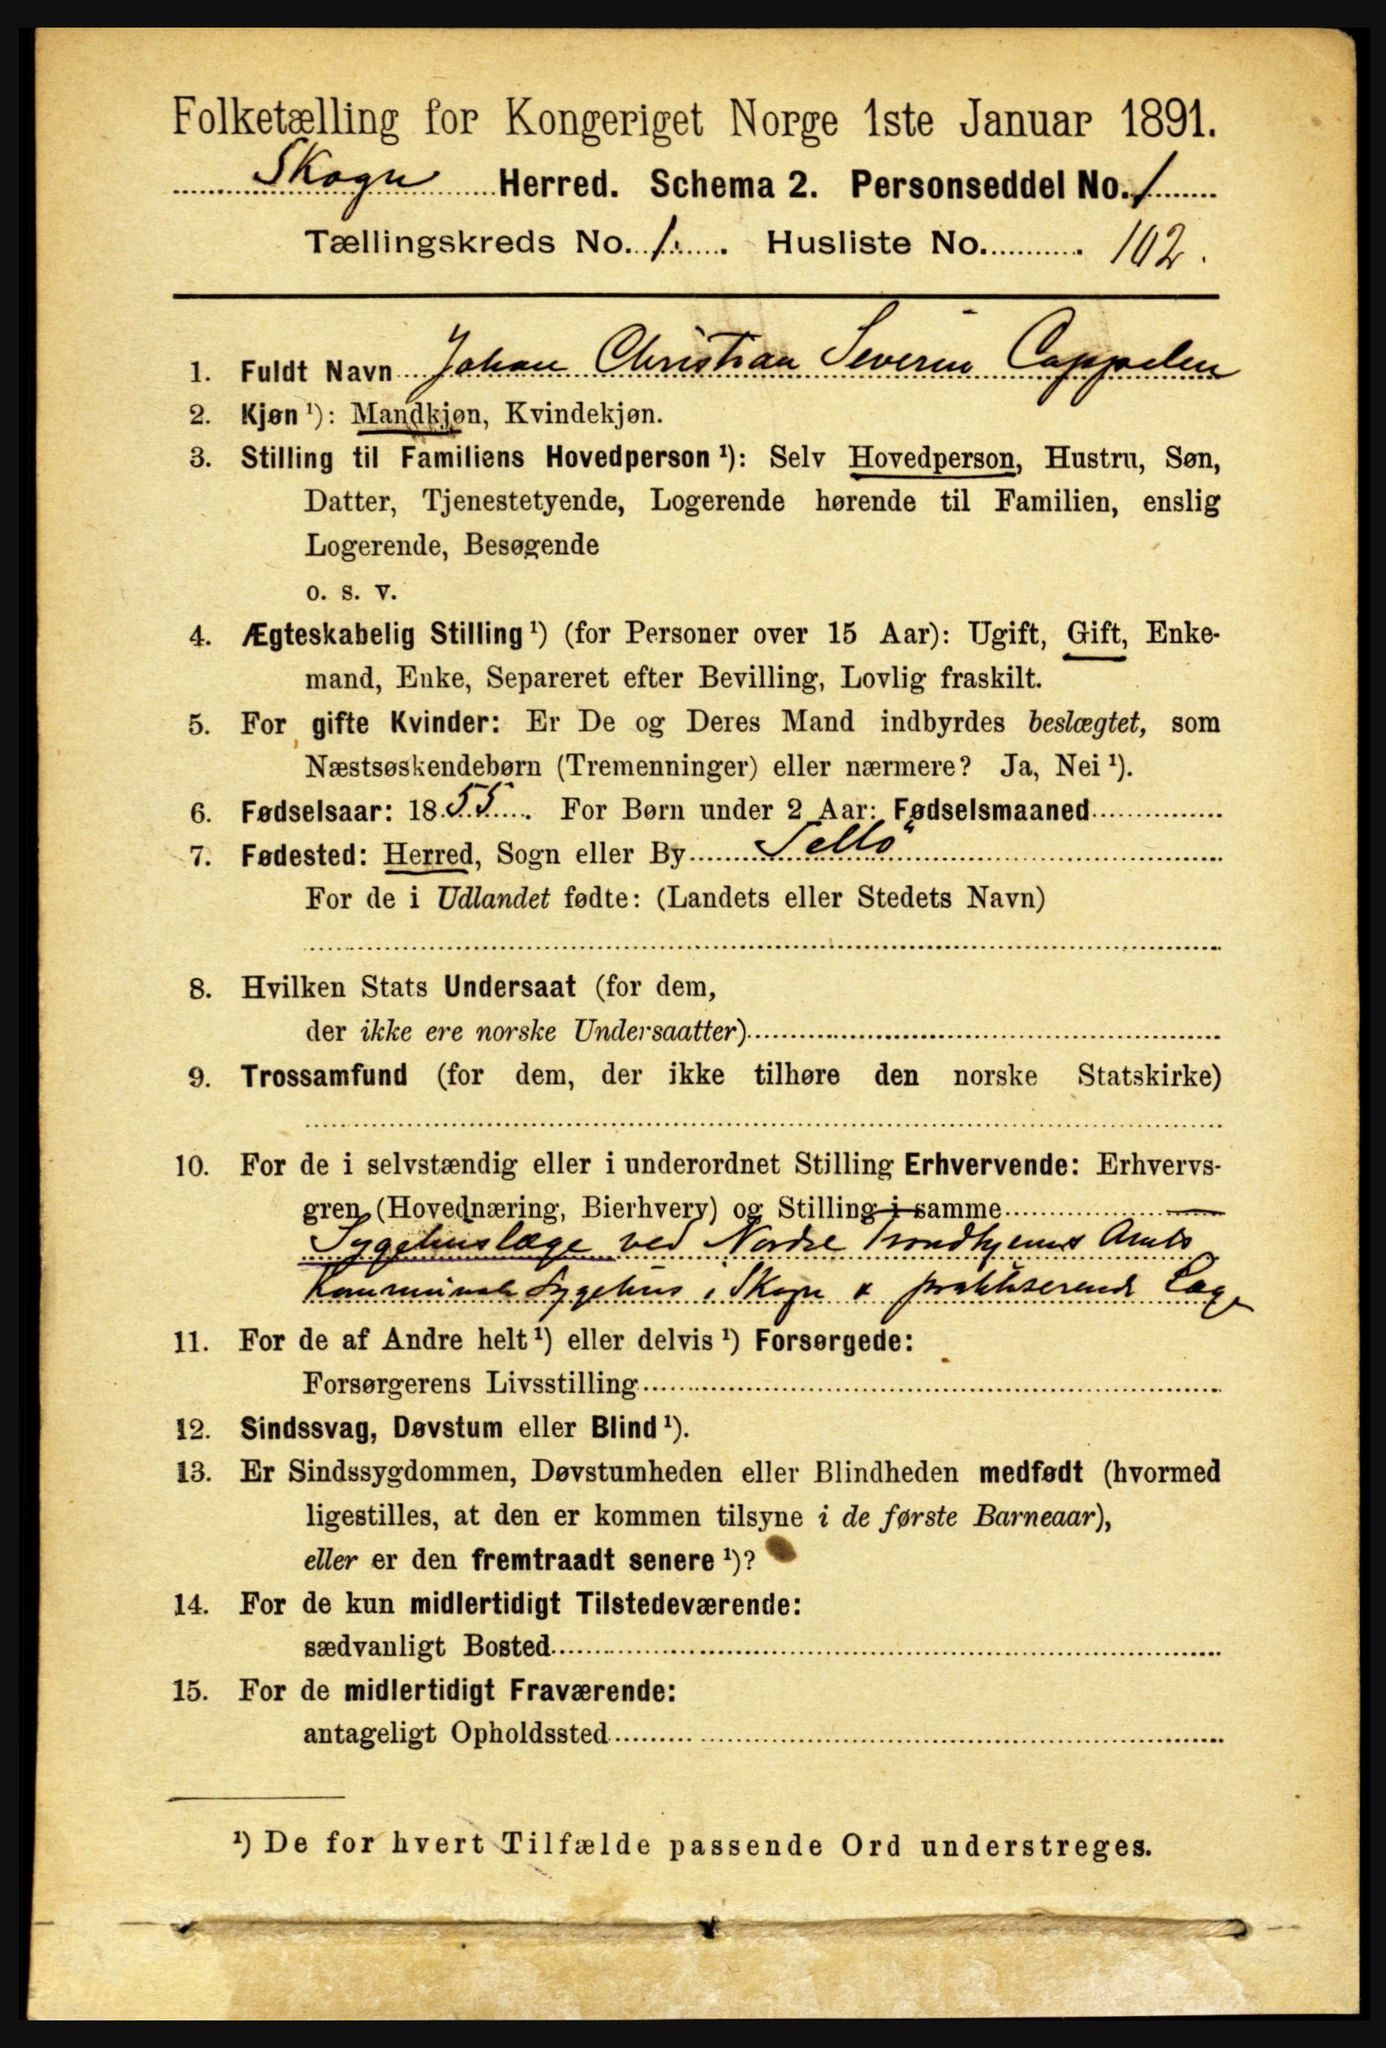 Folketælling for Kongeriget Norge 1ste Januar 1891.
Skogn Herred. Schema 2. Personseddel No. 1
Tællingskreds No. 1. Husliste No. 102.
1. Fuldt Navn Johan Christian Severin Cappelen
2. Kjøn ¹): Mandkjøn, Kvindekjøn.
3. Stilling til Familiens Hovedperson ¹): Selv Hovedperson, Hustru, Søn,
Datter, Tjenestetyende, Logerende hørende til Familien, enslig
Logerende, Besøgende
o. s. v.
4. Ægteskabelig Stilling ¹) (for Personer over 15 Aar): Ugift, Gift, Enke-
mand, Enke, Separeret efter Bevilling, Lovlig fraskilt.
5. For gifte Kvinder: Er De og Deres Mand indbyrdes beslægtet, som
Næstsøskendebørn (Tremenninger) eller nærmere? Ja, Nei ¹).
6. Fødselsaar: 1855. For Børn under 2 Aar: Fødselsmaaned
7. Fødested: Herred, Sogn eller By Sellö
For de i Udlandet fødte: (Landets eller Stedets Navn)
8. Hvilken Stats Undersaat (for dem,
der ikke ere norske Undersaatter)
9. Trossamfund (for dem, der ikke tilhøre den norske Statskirke)
10. For de i selvstændig eller i underordnet Stilling Erhvervende: Erhvervs-
gren (Hovednæring, Bierhverv) og Stilling i samme
Sygehuslæge ved Nordre Trondhjems Amts
Kommunale Sygehus i Skogn & praktiserende Læge
11. For de af Andre helt ¹) eller delvis ¹) Forsørgede:
Forsørgerens Livsstilling
12. Sindssvag, Døvstum eller Blind ¹).
13. Er Sindssygdommen, Døvstumheden eller Blindheden medfødt (hvormed
ligestilles, at den er kommen tilsyne i de første Barneaar),
eller er den fremtraadt senere ¹)?
14. For de kun midlertidigt Tilstedeværende:
sædvanligt Bosted
15. For de midlertidigt Fraværende:
antageligt Opholdssted
¹) De for hvert Tilfælde passende Ord understreges.